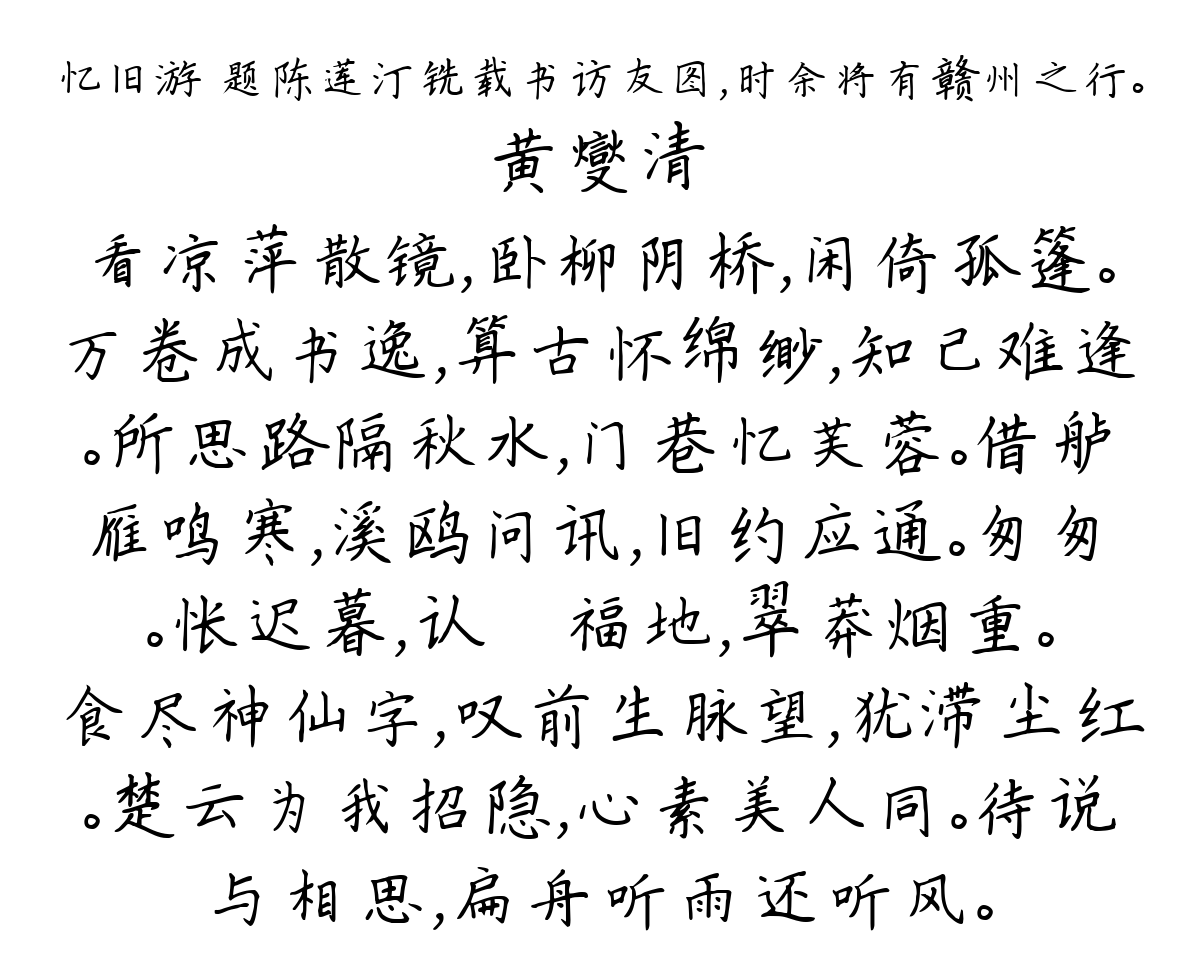 忆旧游 题陈莲汀铣载书访友图,时余将有赣州之行。
黄燮清
看凉萍散镜,卧柳阴桥,闲倚孤篷。
万卷成书逸,算古怀绵缈,知己难逢
。所思路隔秋水,门巷忆芙蓉。借舻
雁鸣寒,溪鸥问讯,旧约应通。匆匆
。怅迟暮,认　福地,翠莽烟重。
食尽神仙字,叹前生脉望,犹滞尘红
。楚云为我招隐,心素美人同。待说
与相思,扁舟听雨还听风。